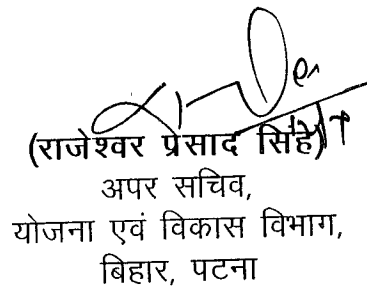 (राजेश्वर प्रसाद सिंह)
अपर सचिव,
योजना एवं विकास विभाग,
बिहार, पटना